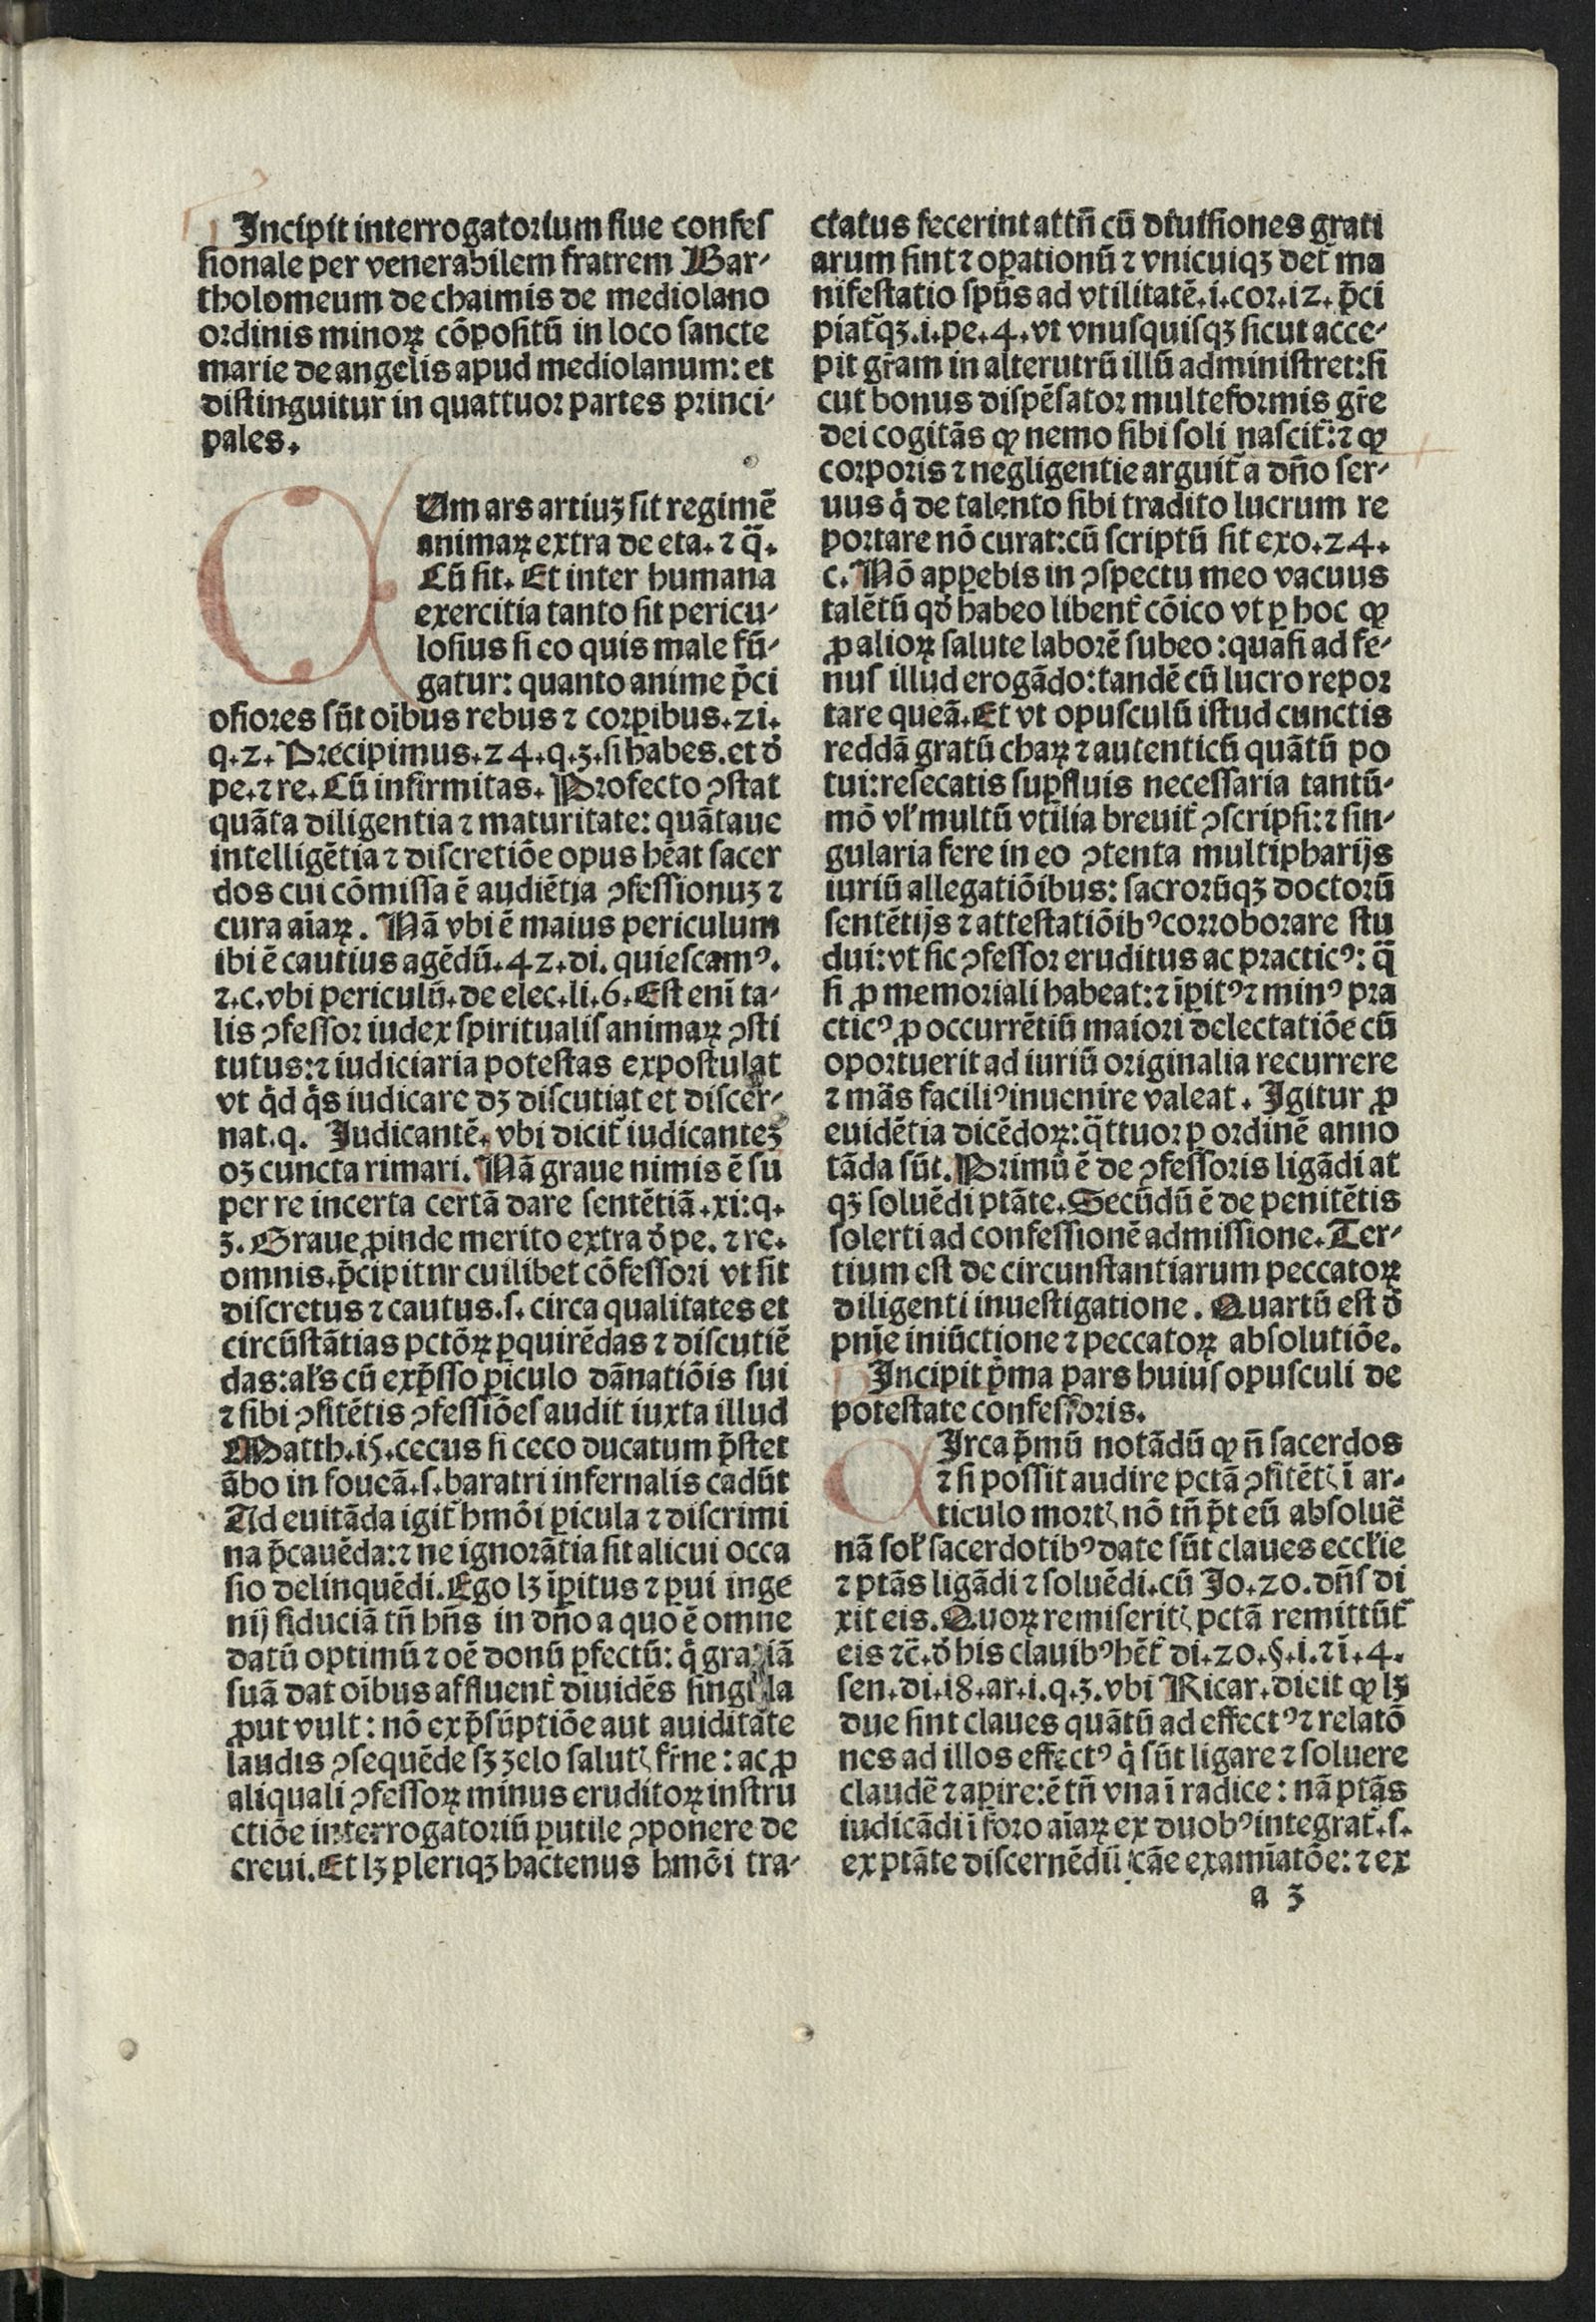 Incipit interrogatorium ſiue confeſ
ſionale per venerabilem fratrem Bar-
tholomeum de chaimis de mediolano
ordinis minoꝝ cōpoſitū in loco ſancte
marie de angelis apud mediolanum: et
diſtinguitur in quattuor partes princi-
pales.
CUm ars artiuꝫ ſit regimē
animaꝝ extra de eta. ⁊ q̄.
Cū ſit. Et inter humana
exercitia tanto ſit pericu-
loſius ſi eo quis male fū-
gatur: quanto anime p̄ci
oſiores ſūt oībus rebus ⁊ corꝑibus. 21.
q. 2. Precipimus. 24. q. 3. ſi habes. et ð
pe. ⁊ re. Cū infirmitas. Profecto ↄſtat
quāta diligentia ⁊ maturitate: quātaue
intelligētia ⁊ diſcretiōe opus hēat ſacer
dos cui cōmiſſa ē audiētia ↄfeſſionuꝫ ⁊
cura aīaꝝ. Nā vbi ē maius periculum
ibi ē cautius agēdū. 42. di. quieſcamꝰ.
⁊. c. vbi periculū. de elec. li. 6. Eſt enī ta-
lis ↄfeſſor iudex ſpiritualiſ animaꝝ ↄſti
tutus: ⁊ iudiciaria poteſtas expoſtulat
vt qͥd qͥs iudicare dꝫ diſcutiat et diſcer-
nat. q. Judicantē. vbi dicit̄ iudicanteꝫ
oꝫ cuncta rimari. Nā graue nimis ē ſu
per re incerta certā dare ſentētiā. xi: q.
3. Graue ꝓinde merito extra ð pe. ⁊ re.
omnis. p̄cipitnr cuilibet cōfeſſori vt ſit
diſcretus ⁊ cautus. ſ. circa qualitates et
circūſtātias pctōꝝ ꝑquirēdas ⁊ diſcutiē
das: al̓s cū exp̄ſſo ꝑiculo dānatiōis ſui
⁊ ſibi ↄfitētis ↄfeſſiōeſ audit iuxta illud
Matth. 15. cecus ſi ceco ducatum p̄ſtet
ābo in foueā. ſ. baratri infernalis cadūt
Ad euitāda igit̄ hmōi ꝑicula ⁊ diſcrimi
na p̄cauēda: ⁊ ne ignorātia ſit alicui occa
ſio delinquēdi. Ego lꝫ īꝑitus ⁊ ꝑui inge
nij fiduciā tn̄ hn̄s in dn̄o a quo ē omne
datū optimū ⁊ oē donū ꝑfectū: qͥ gratiā
ſuā dat oībus affluent̄ diuidēs ſingula
ꝓut vult: nō exp̄ſūptiōe aut auiditate
laudis ↄſequēde ſꝫ ꝫelo ſalutꝭ fr̄ne: ac ꝓ
aliquali ↄfeſſoꝝ minus eruditoꝝ inſtru
ctiōe interrogatoriū ꝑutile ↄponere de
creui. Et lꝫ pleriqꝫ hactenus hmōi tra-
ctatus fecerint attn̄ cū diuiſiones grati
arum ſint ⁊ oꝑationū ⁊ vnicuiqꝫ det̄ ma
nifeſtatio ſpūs ad vtilitatē. i. cor. 12. p̄ci
piat̄qꝫ. i. pe. 4. vt vnuſquiſqꝫ ſicut acce-
pit gr̄am in alterutrū illū adminiſtret: ſi
cut bonus diſpēſator multeformis gr̄e
dei cogitās ꝙ nemo ſibi ſoli naſcit̄: ⁊ ꝙ
corporis ⁊ negligentie arguit̄ a dn̄o ſer-
uus qͥ de talento ſibi tradito lucrum re
portare nō curat: cū ſcriptū ſit exo. 24.
c. Nō apꝑebis in ↄſpectu meo vacuus
talētū qð habeo libent̄ cōico vt ꝑ hoc ꝙ
ꝓ alioꝝ ſalute laborē ſubeo: quaſi ad fe-
nuſ illud erogādo: tandē cū lucro repor
tare queā. Et vt opuſculū iſtud cunctis
reddā gratū chaꝝ ⁊ autenticū quātū po
tui: reſecatis ſuꝑfluis neceſſaria tantū-
mō vl̓ multū vtilia breuit̄ ↄſcripſi: ⁊ ſin-
gularia fere in eo ↄtenta multipharijs
iuriū allegatiōibus: ſacrorūqꝫ doctorū
ſentētijs ⁊ atteſtatiōibꝰ corroborare ſtu
dui: vt ſic ↄfeſſor eruditus ac practicꝰ: q̄
ſi ꝓ memoriali habeat: ⁊ īꝑitꝰ ⁊ minꝰ pra
cticꝰ ꝓ occurrētiū maiori delectatiōe cū
oportuerit ad iuriū originalia recurrere
⁊ māſ faciliꝰ inuenire valeat. Igitur ꝓ
euidētia dicēdoꝝ: q̄ttuor ꝑ ordinē anno
tāda ſūt. Primū ē de ↄfeſſoris ligādi at
qꝫ ſoluēdi ptāte. Secūdū ē de penitētis
ſolerti ad confeſſionē admiſſione. Ter-
tium eſt de circunſtantiarum peccatoꝝ
diligenti inueſtigatione. Quartū eſt ð
pnīe iniūctione ⁊ peccatoꝝ abſolutiōe.
Incipit pͥma pars huiuſ opuſculi de
poteſtate confeſſoris.
CIrca pͥmū notādū ꝙ n̄ ſacerdos
⁊ ſi poſſit audire pctā ↄfitētꝭ ī ar-
ticulo mortꝭ nō tn̄ p̄t eū abſoluē
nā ſol̓ ſacerdotibꝰ date ſūt claues eccl̓ie
⁊ ptās ligādi ⁊ ſoluēdi. cū Jo. 20. dn̄ſ di
xit eis. Quoꝝ remiſeritꝭ pctā remittūt̄
eis ⁊c̄. ð his clauibꝰ hēt̄ di. 20. §. i. ⁊ ī. 4.
ſen. di. 18. ar. i. q. 3. vbi Ricar. dicit ꝙ lꝫ
due ſint claues quātū ad effectꝰ ⁊ relatō
nes ad illos effectꝰ qͥ ſūt ligare ⁊ ſoluere
claudē ⁊ apire: ē tn̄ vna ī radice: nā ptās
iudicādi ī foro aīaꝝ ex duobꝰ integrat̄. ſ.
ex ptāte diſcernēdū cāe examīatōe: ⁊ ex
a 3